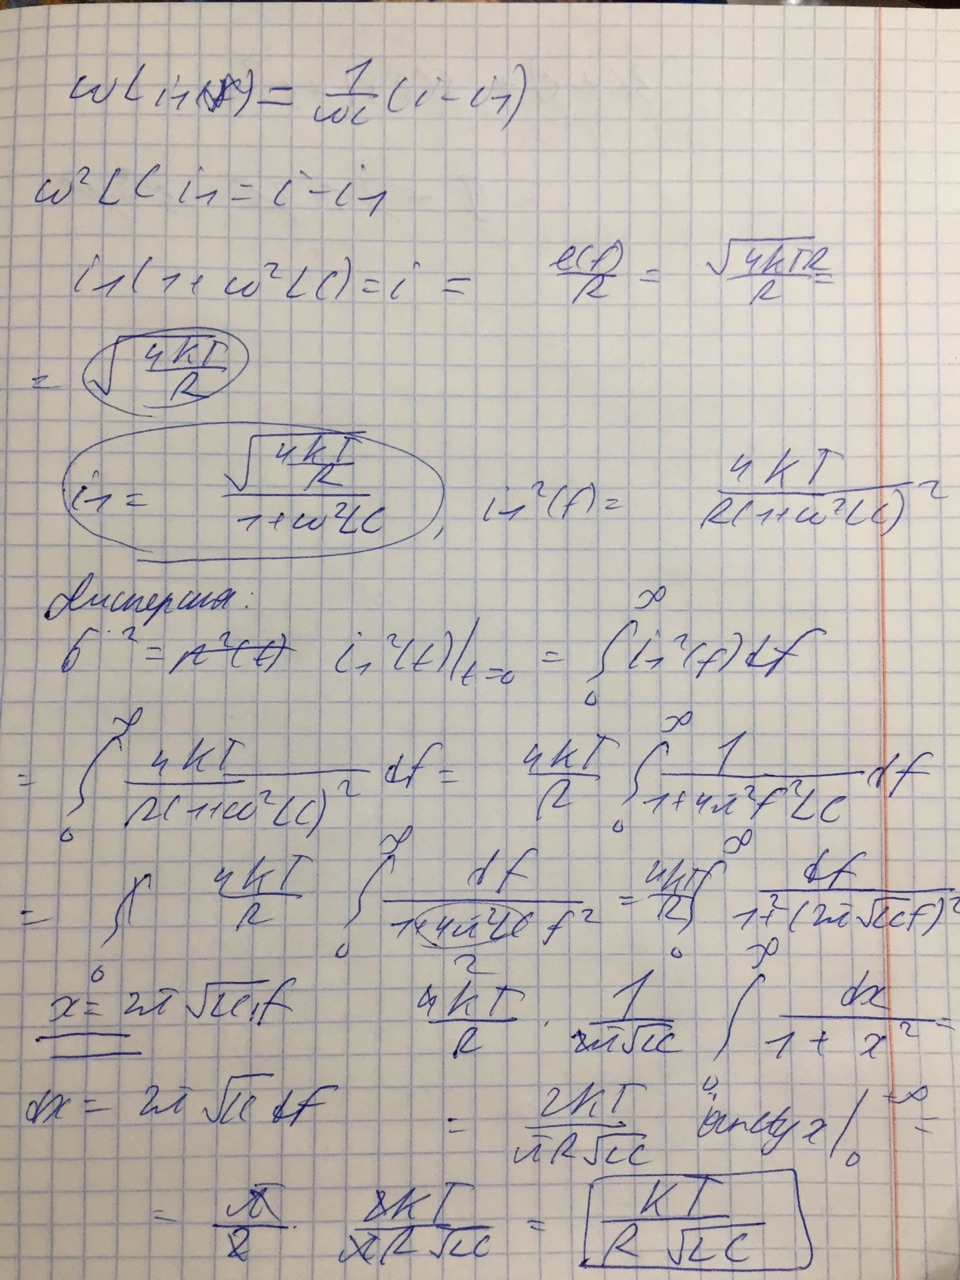 ωL i₁(f) = 1/ωC (i - i₁)
ω²LC i₁ = i - i₁
i₁(1+ω²LC) = i = e(f)/R = √4kTR/R =
= √(4kT/R)
i₁ = √(4kT/R)/(1+ω²LC), i₁²(f) = 4kT/R(1+ω²LC)²
Дисперсия:
σ² = i₁²(t)|t=0 = ∫₀^∞ i₁²(f) df
= ∫₀^∞ 4kT/R(1+ω²LC)² df = 4kT/R ∫₀^∞ 1/(1+4π²f²LC) df
= ∫₀ 4kT/R ∫₀^∞ df/(1+4π²LC f²) = 4kT/R ∫₀^∞ df/(1²+(2π√LC f)²)
x = 2π√LC f 4kT/R · 1/2π√LC ∫₀^∞ dx/(1+x²) =
dx = 2π√LC df = 2kT/πR√LC arctg x|₀^∞ =
= π/2 · 2kT/πR√LC = kT/R√LC